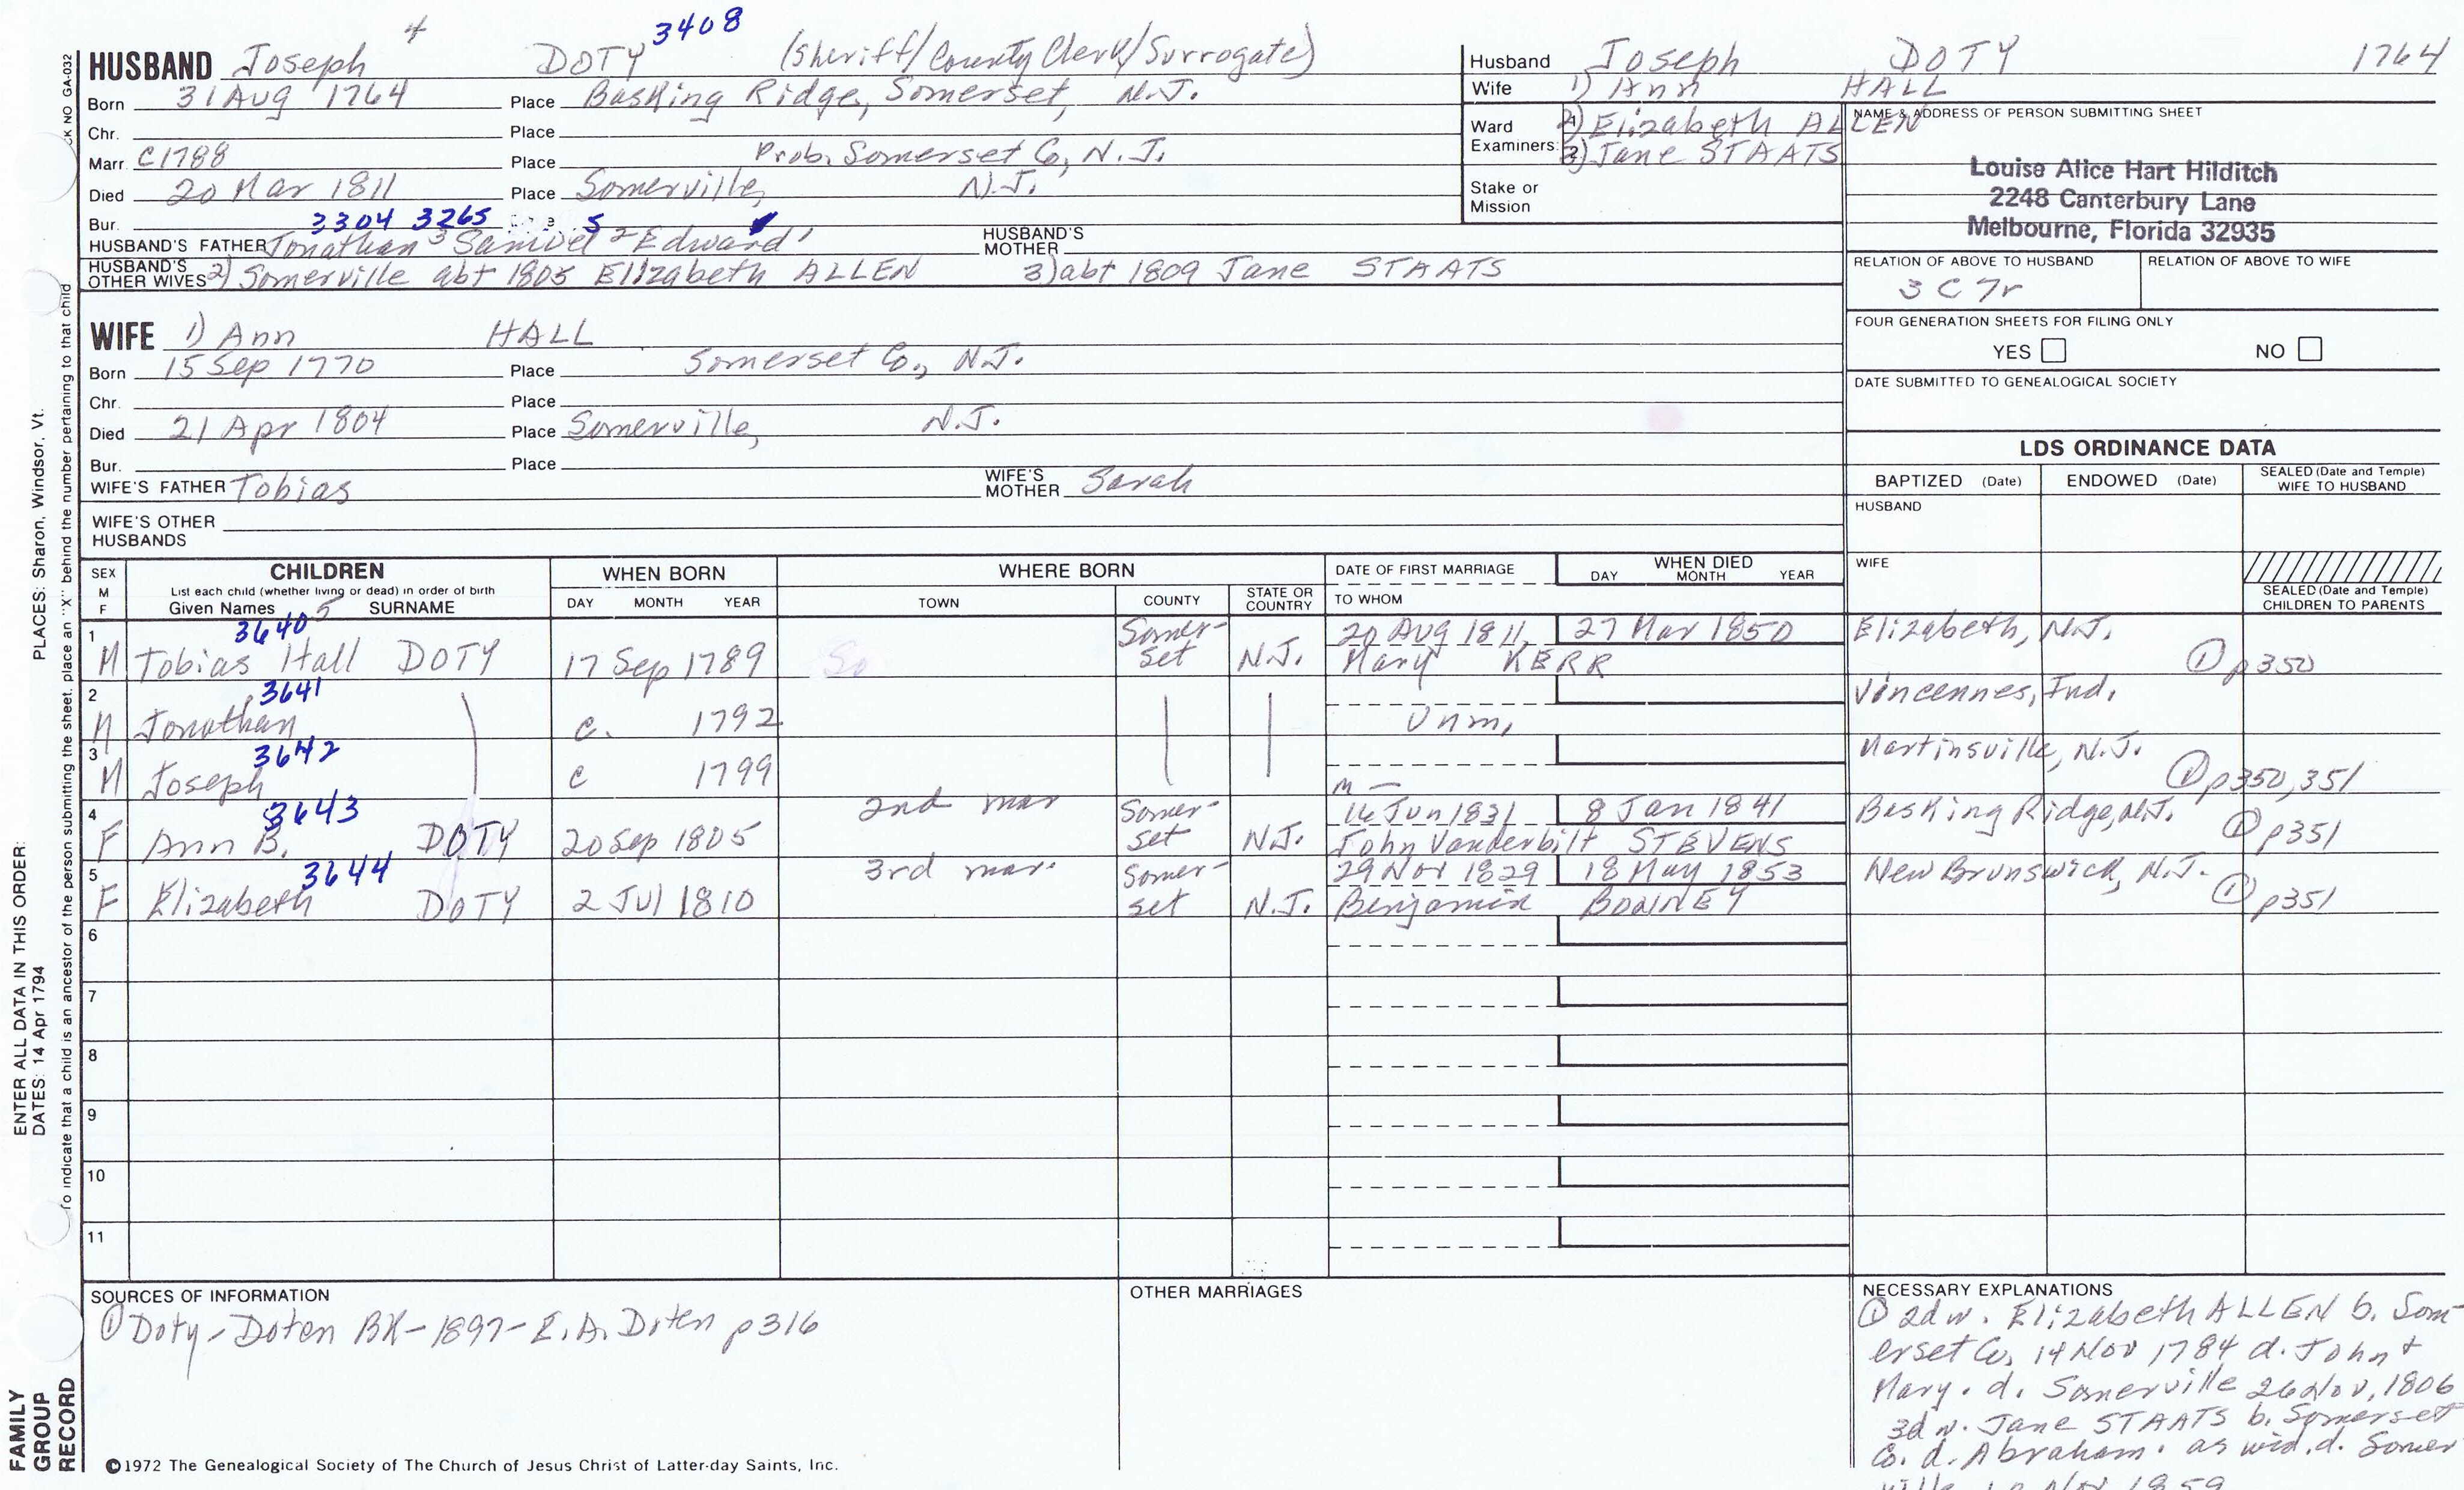 4 3408
HUSBAND Joseph DOTY (Sheriff/County Clerk/Surrogate)
Born 31 Aug 1764 Place Basking Ridge, Somerset, N.J.
Chr. Place
Marr. C1788 Place Prob. Somerset Co, N.J.
Died 20 Mar 1811 Place Somerville, N.J.
Bur. 3304 3265 5
HUSBAND'S FATHER Jonathan 3 Samuel 2 Edward 1 HUSBAND'S MOTHER
HUSBAND'S OTHER WIVES 2) Somerville abt 1805 Elizabeth ALLEN 3) abt 1809 Jane STAATS
WIFE 1) Ann HALL
Born 15 Sep 1770 Place Somerset Co., N.J.
Chr. Place
Died 21 Apr 1804 Place Somerville, N.J.
Bur. Place
WIFE'S FATHER Tobias WIFE'S MOTHER Sarah
WIFE'S OTHER HUSBANDS
Husband Joseph DOTY 1764
Wife 1) Ann HALL
Ward 2) Elizabeth ALLEN
Examiners: 3) Jane STAATS
Stake or
Mission
NAME & ADDRESS OF PERSON SUBMITTING SHEET
Louise Alice Hart Hilditch
2248 Canterbury Lane
Melbourne, Florida 32935
RELATION OF ABOVE TO HUSBAND RELATION OF ABOVE TO WIFE
3 C 7r
FOUR GENERATION SHEETS FOR FILING ONLY
YES NO
DATE SUBMITTED TO GENEALOGICAL SOCIETY
LDS ORDINANCE DATA
BAPTIZED (Date) ENDOWED (Date) SEALED (Date and Temple) WIFE TO HUSBAND
HUSBAND
WIFE
SEALED (Date and Temple) CHILDREN TO PARENTS
SEX M F CHILDREN WHEN BORN WHERE BORN DATE OF FIRST MARRIAGE WHEN DIED
List each child (whether living or dead) in order of birth
Given Names 5 SURNAME DAY MONTH YEAR TOWN COUNTY STATE OR COUNTRY TO WHOM DAY MONTH YEAR
1 3640 Somer- 20 Aug 1811 27 Mar 1850 Elizabeth, N.J.
M Tobias Hall DOTY 17 Sep 1789 So set N.J. Mary KERR ① p350
2 3641 Vincennes, Ind.
M Jonathan c. 1792 Unm.
3 3642 Martinsville, N.J.
M Joseph c 1799 m — ① p350, 351
4 3643 2nd mar Somer- 16 Jun 1831 8 Jan 1841 Basking Ridge, N.J.
F Ann B. DOTY 20 Sep 1805 set N.J. John Vanderbilt STEVENS ① p351
5 3644 3rd mar. Somer- 29 Nov 1829 18 May 1853 New Brunswick, N.J.
F Elizabeth DOTY 2 Jul 1810 set N.J. Benjamin ① p351
6
7
8
9
10
11
SOURCES OF INFORMATION
① Doty-Doten BK-1897-E.A. Doten p316
OTHER MARRIAGES
NECESSARY EXPLANATIONS
① 2d w. Elizabeth ALLEN b. Som-
erset Co, 14 Nov 1784 d. John +
Mary. d. Somerville 26 Nov, 1806
3d w. Jane STAATS b. Somerset
Co. d. Abraham. as wid. d. Somer
ville Nov 1859
©1972 The Genealogical Society of The Church of Jesus Christ of Latter-day Saints, Inc.
FAMILY
GROUP
RECORD
ENTER ALL DATA IN THIS ORDER:
DATES: 14 Apr 1794
PLACES: Sharon, Windsor, Vt.
To indicate that a child is an ancestor of the person submitting the sheet, place an "X" behind the number pertaining to that child
CK NO GA-032